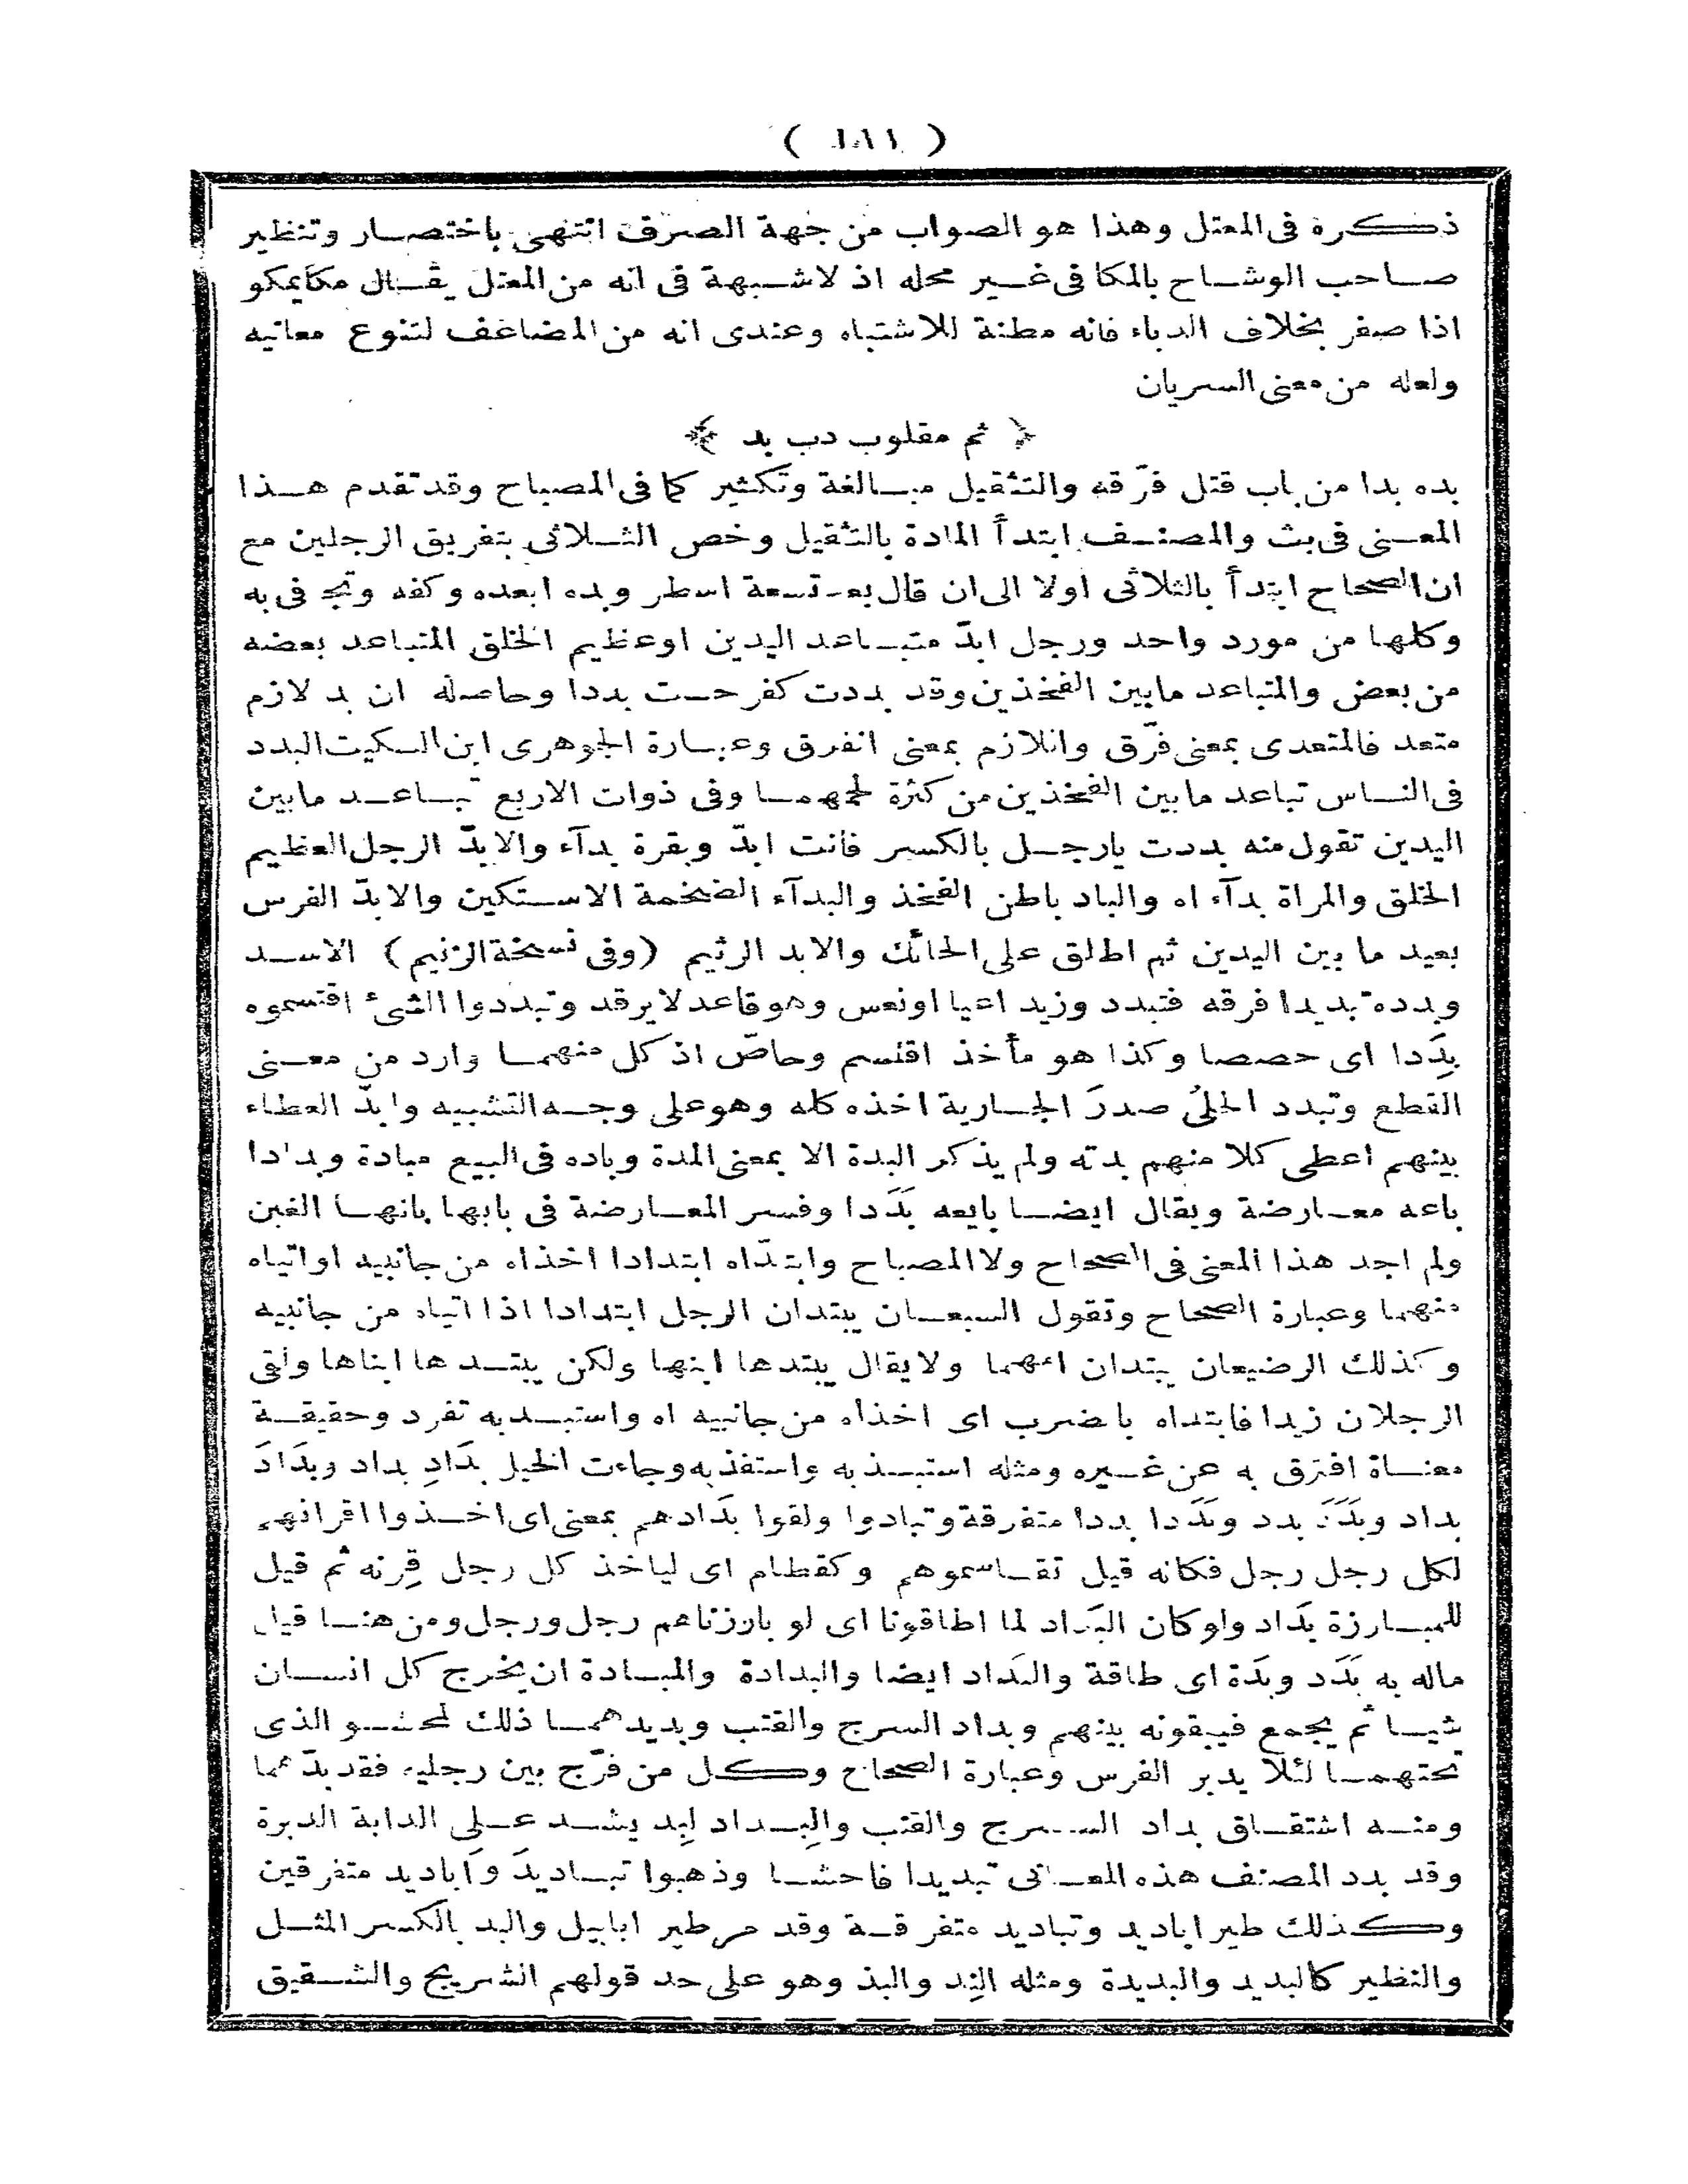 ( ١٨١ )
ذكره فى المعتل وهذا هو الصواب من جهة الصرف انتهى باختصار وتنظير
صاحب الوشاح بالمكا فى غير محله اذ لا شبهة فى انه من المعتل يقال مكا يمكو
اذا صفر بخلاف الدباء فانه مظنة للاشتباه وعندى انه من المضاعف لتنوع معانيه
ولعله من معنى السريان
﴿ ثم مقلوب دب بد ﴾
بده بدا من باب قتل فرّقه والتثقيل مبالغة وتكثير كما فى المصباح وقد تقدم هذا
المعنى فى بث والمصنف ابتدأ المادة بالتثقيل وخص الثلاثى بتفريق الرجلين مع
ان الصحاح ابتدأ بالثلاثى اولا الى ان قال بعد تسعة اسطر وبده ابعده وكفه وتجـ فى به
وكلها من مورد واحد ورجل ابدّ متباعد اليدين او عظيم الخلق المتباعد بعضه
من بعض والمتباعد مابين الفخذين وقد بددت كفرحت بددا وحاصله ان بد لازم
متعد فالمتعدى بمعنى فرّق واللازم بمعنى انفرق وعبارة الجوهرى ابن السكيت البدد
فى الناس تباعد مابين الفخذين من كثرة لحمهما وفى ذوات الاربع تباعد مابين
اليدين تقول منه بددت يارجل بالكسر فانت ابدّ وبقرة بدآء والابدّ الرجل العظيم
الخلق والمراة بدآء اه والباد باطن الفخذ والبدآء الضخمة الاستكين والابدّ الفرس
بعيد ما بين اليدين ثم اطلق على الحائك والابد الرثيم (وفى نسخة الزنيم) الاسد
وبدده تبديدا فرقه فتبدد وزيد اعيا او نعس وهو قاعد لا يرقد وتبددوا الشئ اقتسموه
بِدَدا اى حصصا وكذا هو مأخذ اقتسم وحاصّ اذ كل منهما وارد من معنى
القطع وتبدد الحلىُ صدرَ الجارية اخذه كله وهو على وجه التشبيه وابدّ العطاء
بينهم اعطى كلا منهم بدته ولم يذكر البدة الا بمعنى المدة وباده فى البيع مبادة وبدادا
باعه معارضة ويقال ايضا بايعه بَدَدا وفسر المعارضة فى بابها بانها الغبن
ولم اجد هذا المعنى فى الصحاح ولا المصباح وابتدّاه ابتدادا اخذاه من جانبيه او اتياه
منهما وعبارة الصحاح وتقول السبعان يبتدان الرجل ابتدادا اذا اتياه من جانبيه
وكذلك الرضيعان يبتدان امهما ولا يقال يبتدها ابنها ولكن يبتدها ابناها ولقى
الرجلان زيدا فابتداه باضرب اى اخذاه من جانبيه اه واستبد به تفرد وحقيقة
معناة افترق به عن غيره ومثله استبذ به واستفذ به وجاءت الخيل بَدَادِ بداد وبَدَادَ
بداد وبَدَدَ بدد وبَدَدا بددا متفرقة وتبادوا ولقوا بَدَادهم بمعنى اى اخذوا اقرانهم
لكل رجل رجل فكانه قيل تقاسموهم وكقطام اى لياخذ كل رجل قِرنه ثم قيل
للمبارزة بَداد ولو كان البَداد لما اطاقونا اى لو بارزناهم رجل ورجل ومن هنا قيل
ماله به بَدَد وبَدَة اى طاقة والبَداد ايضا والبدادة والمبادة ان يخرج كل انسان
شيا ثم يجمع فيبقونه بينهم وبداد السرج والقتب وبديدهما ذلك المحشو الذى
تحتهما لئلا يدبر الفرس وعبارة الصحاح وكل من فرّج بين رجليه فقد بدّهما
ومنه اشتقاق بداد السرج والقتب والبِداد لِبِد يشد على الدابة الدبرة
وقد بدد المصنف هذه المعانى تبديدا فاحشا وذهبوا تباديدَ وأباديد متفرقين
وكذلك طير اباديد وتباديد متفرقة وقد مر طير ابابيل والبد بالكسر المثل
والنظير كالبديد والبديدة ومثله النِد والبذ وهو على حد قولهم الشريج والشقيق